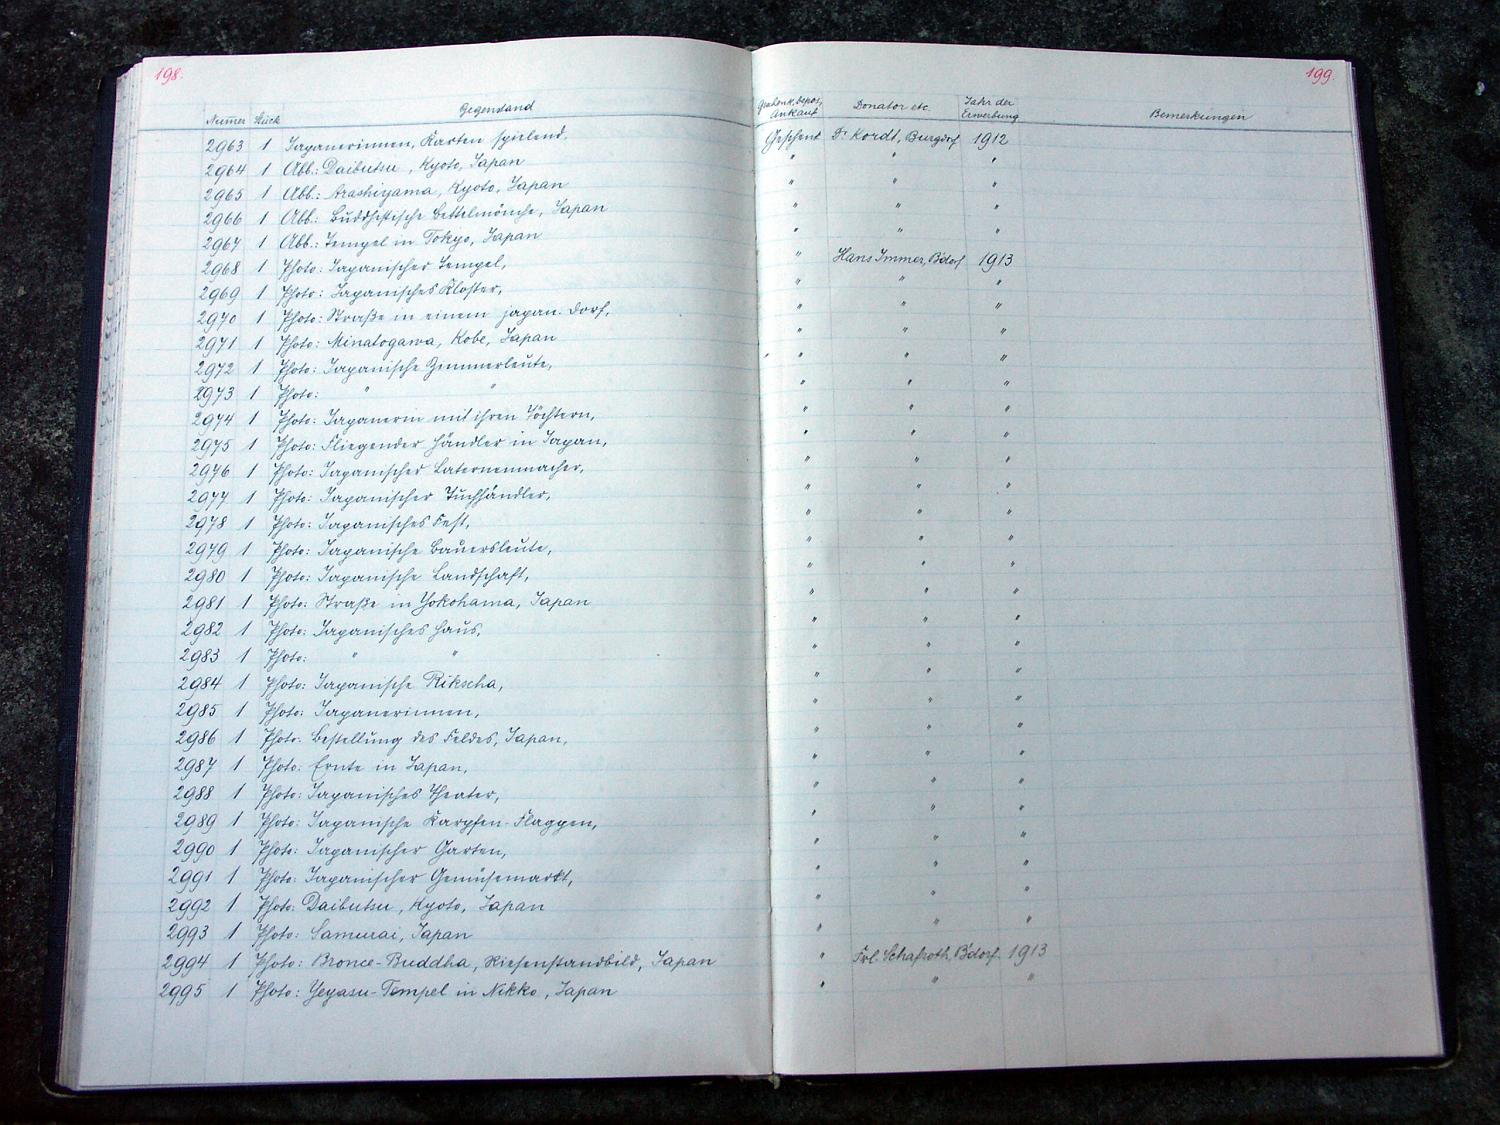 198.
199.
Numer Stück Gegenstand Geschenk, depos, Ankauf Donator etc. Jahr der Erwerbung Bemerkungen
2963 1 Japanerinnen, Karten spielend. Geschenk Fr. Kordt, Burgdorf 1912
2964 1 Abb.: Daibutsu, Kyoto, Japan " " "
2965 1 Abb.: Arashiyama, Kyoto, Japan " " "
2966 1 Abb.: Buddhistische Bettelmönche, Japan " " "
2967 1 Abb.: Tempel in Tokyo, Japan " " "
2968 1 Photo: Japanischer Tempel, " Hans Immer, Bdorf 1913
2969 1 Photo: Japanisches Kloster, " " "
2970 1 Photo: Straße in einem japan. Dorf, " " "
2971 1 Photo: Minatogawa, Kobe, Japan " " "
2972 1 Photo: Japanische Zimmerleute, " " "
2973 1 Photo: " " " " "
2974 1 Photo: Japanerin mit ihren Töchtern, " " "
2975 1 Photo: Fliegender Händler in Japan, " " "
2976 1 Photo: Japanischer Laternenmacher, " " "
2977 1 Photo: Japanischer Tuchhändler, " " "
2978 1 Photo: Japanisches Fest, " " "
2979 1 Photo: Japanische Bauersleute, " " "
2980 1 Photo: Japanische Landschaft, " " "
2981 1 Photo: Straße in Yokohama, Japan " " "
2982 1 Photo: Japanisches Haus, " " "
2983 1 Photo: " " " " "
2984 1 Photo: Japanische Rikscha, " " "
2985 1 Photo: Japanerinnen, " " "
2986 1 Photo: Bestellung des Feldes, Japan, " " "
2987 1 Photo: Ernte in Japan, " " "
2988 1 Photo: Japanisches Theater, " " "
2989 1 Photo: Japanische Karpfen-Flaggen, " " "
2990 1 Photo: Japanischer Garten, " " "
2991 1 Photo: Japanischer Gemüsemarkt, " " "
2992 1 Photo: Daibutsu, Kyoto, Japan " " "
2993 1 Photo: Samurai, Japan " " "
2994 1 Photo: Bronce-Buddha, Riesenstandbild, Japan " Frl. Schafroth, Bdorf. 1913
2995 1 Photo: Yeyasu-Tempel in Nikko, Japan " " "